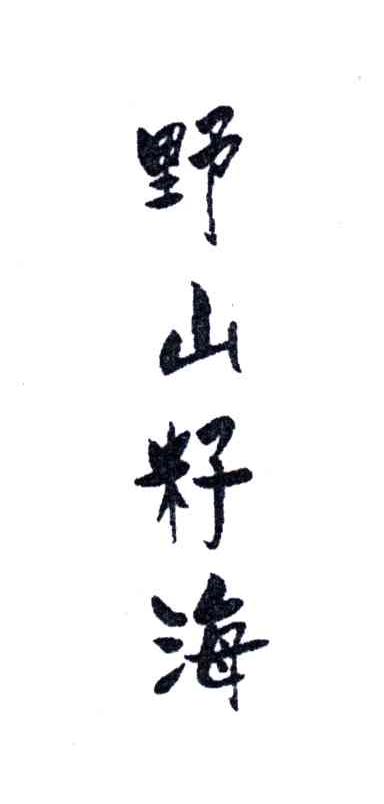 野山籽海